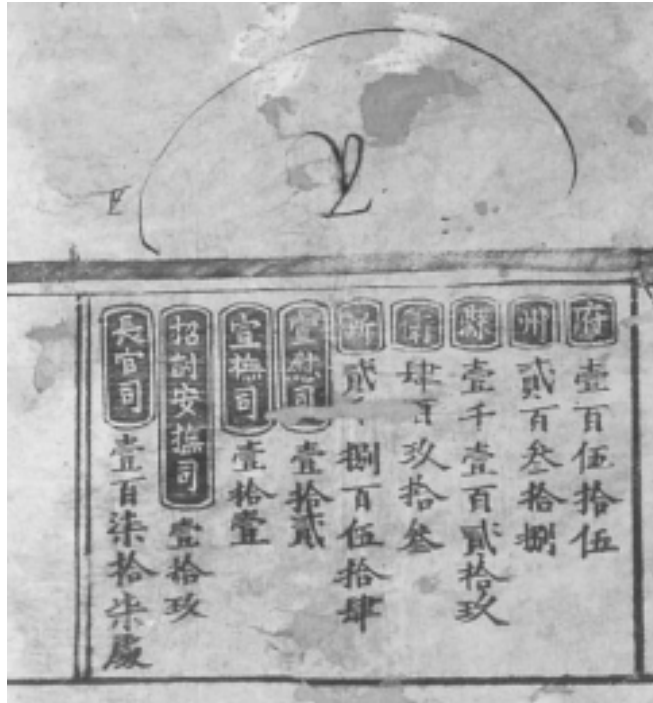 府壹百伍拾伍
州貳百叁拾捌
縣壹千壹百貳拾玖
衛肆百玖拾叁
所貳千捌百伍拾肆
宣慰司壹拾貳
宣撫司壹拾壹
招討安撫司壹拾玖
長官司壹百柒拾柒處